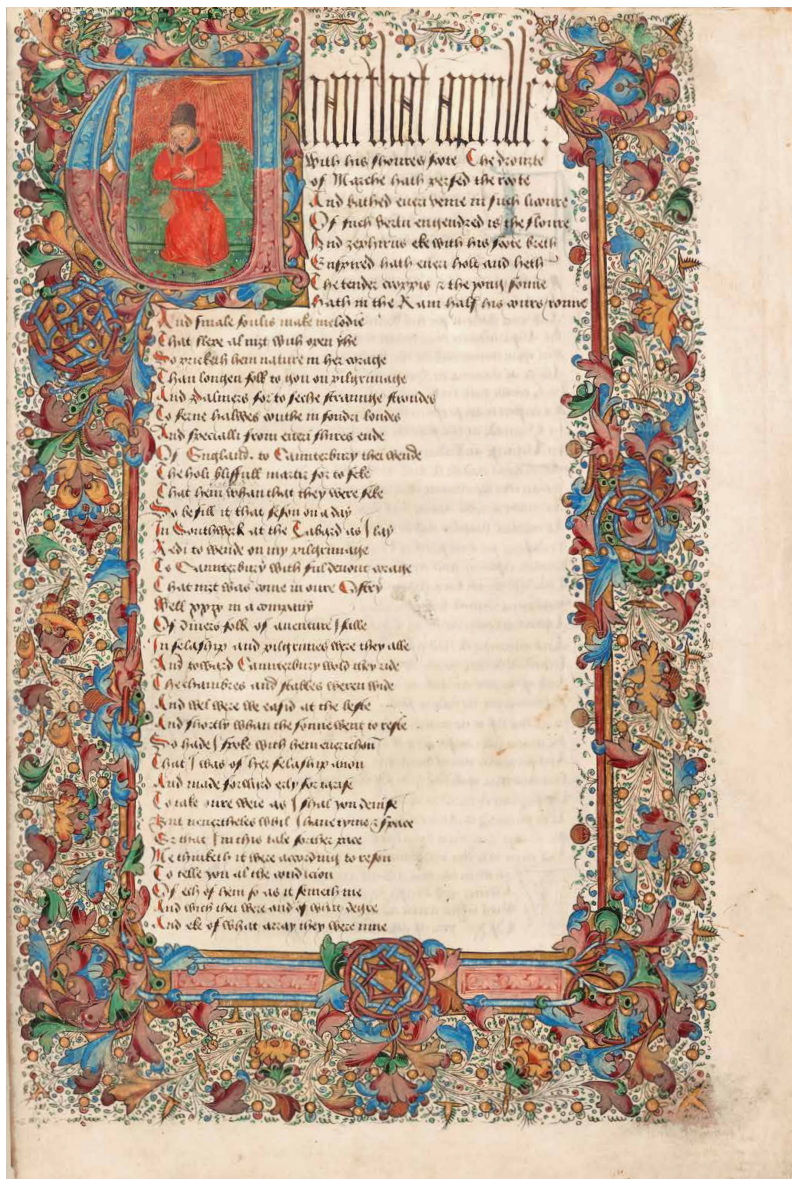 Whan that aprille
With his shoures soote The drouzte
of Marche hath persed the roote
And bathed eueri veine in such licoure
Of such vertu engendred is the floure
And zephirus eke with his soote breth
Enspired hath eueri holt and heth
The tender croppis & the yong sonne
Hath in the Ram half his cours ronne
And smale foulis make melodie
That slepe al nizt with open yhe
So pricketh hem nature in her corage
Than longen folk to gon on pilgrimage
And Palmers for to seche straunge strondes
To ferne halwes couthe in sondri londes
And specialli from eueri shires ende
Of England to Caunterbury thei wende
The holi blissfull martir for to seke
That hem whan that they were seke
So befill it that seson on a day
In Southwerk at the Tabard as I lay
Redi to wende on my pilgrimage
To Caunterbury with ful deuout corage
That nizt was come in oure Ostry
Well xxix in a company
Of diuers folk of auenture I falle
In felaship and pilgrimes were they alle
And toward Caunterbury wold they ride
The chambres and stables weren wide
And wel were we easid at the beste
And shortly whan the sonne went to reste
So hade I spoke with hem euerichon
That I was of her felaship anon
And made forward erly for tarise
To take oure weie as I shal you deuise
But neuertheles whil I haue tyme & space
Er that I in this tale forther pace
Me thinketh it were according to reson
To telle you al the condicion
Of ech of hem so as it semeth me
And wich thei were and of what degre
And eke of what array they were inne